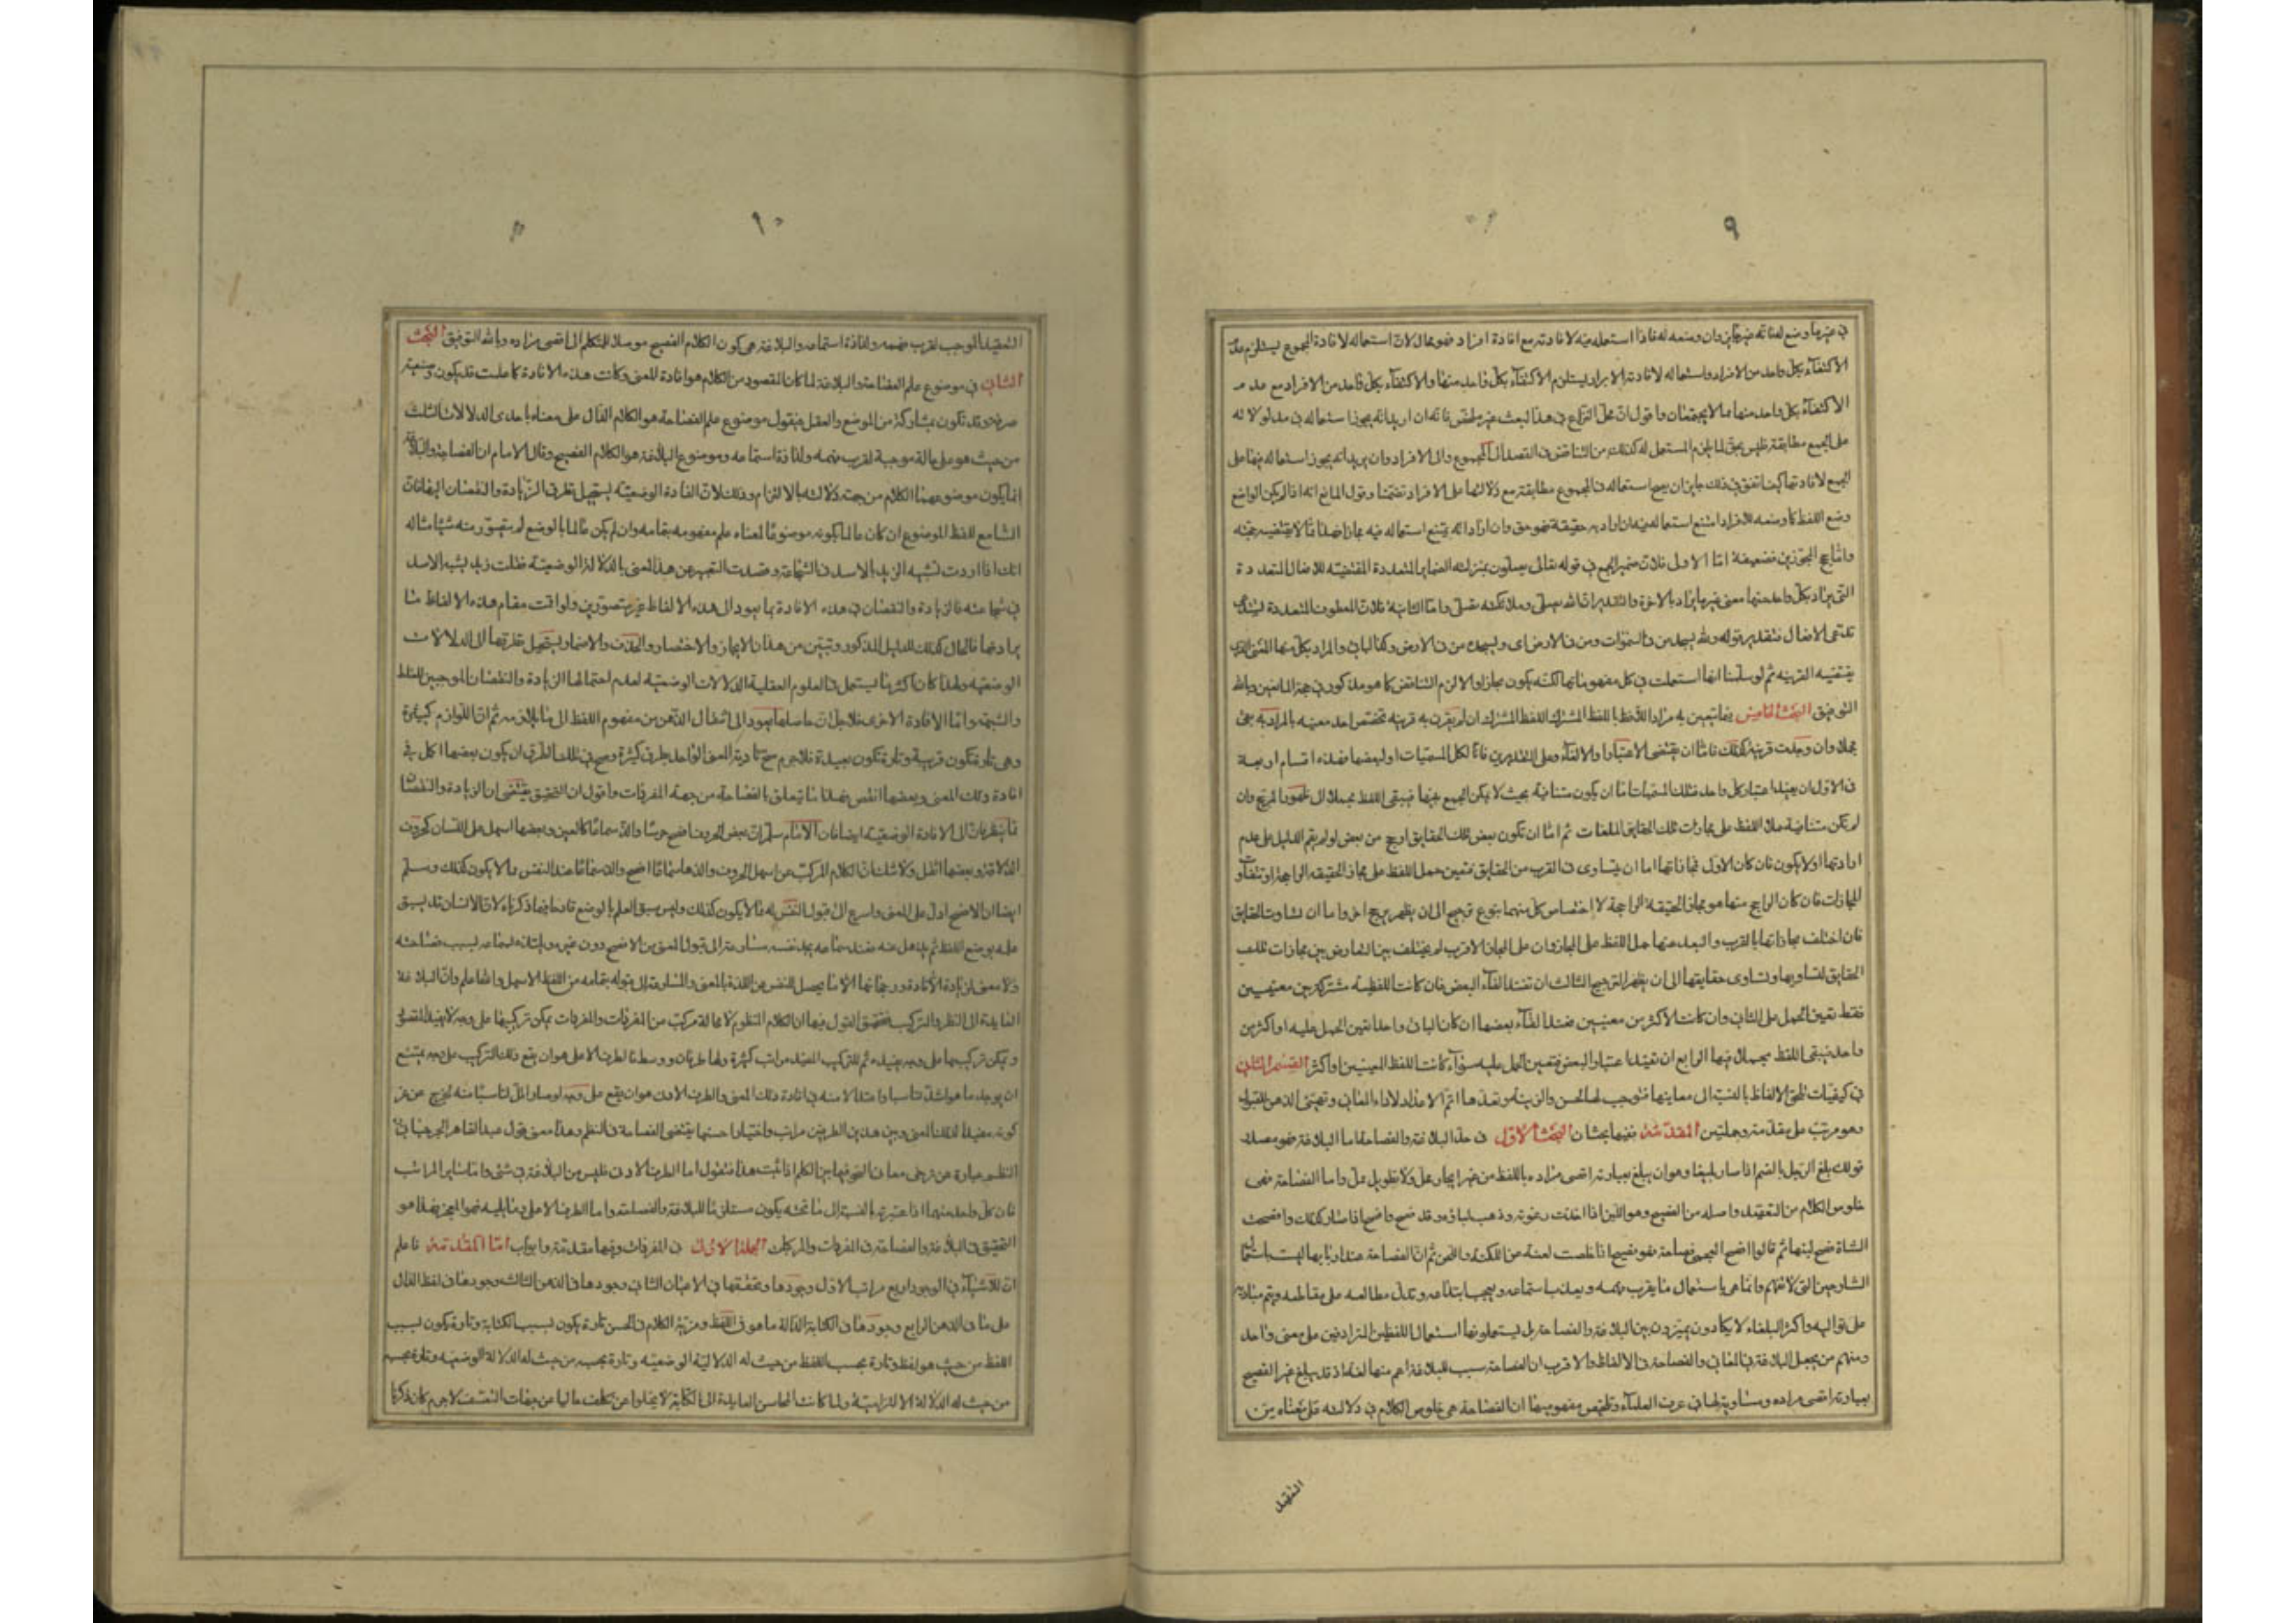 ٩
في غير ما وضع لعنائه غير جايز وان وضعه له فاذا استعمله فيه لافادته مع افادة افراد فهو محال لان استعماله لافادة المجموع يستلزم عدم
الاكتفاء بكل واحد من الافراد واستعماله لافادته الافراد يستلزم الاكتفاء بكل واحد منها والاكتفاء بكل واحد من الافراد مع عدم
الاكتفاء بكل واحد منها مما لا يجتمعان واقول ان محل النزاع في هذا البحث غير ملخص فانه ان اريد انه يجوز استعماله في مدلولاته
على الجميع مطابقة فليس بحق لما يلزم المستعمل له كذلك من التناقض في القصد الى المجموع والى الافراد وان يريد انه يجوز استعماله فيها على
الجميع لافادتها كيف اتفق في ذلك جاز ان يصح استعماله في المجموع مطابقة مع دلالتها على الافراد تضمنا وقول المانع انه اذا لم يكن الواضع
وضع اللفظ كما وضعه للافراد امتنع استعماله فيه ان اراد به حقيقة فهو حق وان اراد انه يمتنع استعماله فيه مجازا ايضا فالا يقتضيه حجته
واما حجج المجوزين فضعيفة اما الاولى فلان ضمير الجمع في قوله تعالى يصلون بمنزلة الضماير المتعددة المقتضية للافعال المتعددة
التي يراد بكل واحد منها معنى غير ما يراد بالاخر والتقدير ان الله يصلي وملائكته تصلي واما الثانية فلان العطوف المتعددة
تدعى الافعال فتقدير قوله ولله يسجد من في السموات ومن في الارض اى ويسجد من في الارض وكذا الباقي والمراد بكل منها المعنى الذي
يقتضيه القرينه ثم لو سلمنا انها استعملت في كل مفهوماتها لكنه يكون مجازا والالزم التناقض كما هو مذكور في حجة المانعين وبالله
التوفيق البحث الخامس فيما يتعين به مراد اللافظ باللفظ المشترك اللفظ المشترك ان لم يقترن به قرينه تخصص احد معنييه بالمراد به بقى
مجملا وان وجدت قرينه كذلك فاما ان يقتضى الاعتبار او الالغاء وعلى التقديرين فاما لكل المسميات او لبعضها فهذه اقسام اربعة
فالاول ان يفيد اعتبار كل واحد فتلك المسميات اما ان يكون متنافية بحيث لا يمكن الجمع بينها فيبقى اللفظ مجملا الى ظهور المرجح وان
لم تكن متنافية حمل اللفظ على مجازات تلك الحقايق الملغات ثم اما ان تكون بعض تلك الحقايق ارجح من بعض لو لم يقم الدليل على عدم
ارادتها او لا يكون فان كان الاول فمجازاتها اما ان يتساوى في القرب من الحقايق فتعين حمل اللفظ على مجاز الحقيقه الراجحة او تتفاوت
المجازات فان كان الراجح منها هو مجاز الحقيقة الراجحة لا اختصاص كل منهما بنوع ترجيح الى ان يظهر مرجح اخر واما ان تساوت الحقايق
فان اختلف مجازاتها بالقرب والبعد منها حمل اللفظ على المجاز وان على المجاز الاقرب لم يختلف بين التعارض بين مجازات تلك
الحقايق لتساويها وتساوى حقايقها الى ان يظهر الترجيح الثالث ان تفيد الغاء البعض فان كانت اللفظة مشتركة بين معنيين
فقط تعين الحمل على الثاني وان كانت الاكثر من معنيين فعند الغاء بعضها ان كان الباقي واحدا تعين الحمل عليه او اكثر من
واحد فيبقى اللفظ مجملا فيها الرابع ان تفيد اعتبار البعض فتعين الحمل عليه سواء كانت اللفظ للمعنيين او اكثر القسم الثاني
في كيفيات تلحق الالفاظ بالنسبة الى معاينها فتوجب لها الحسن والزينة وتعدها اتم الاعداد لاداء المعاني وتهيئ الذهن للقبول
وهو مرتب على مقدمة وجملتين المقدمة ففيها بحثان البحث الاول في حد البلاغة والفصاحة اما البلاغة فهو مصدر
قولك بلغ الرجل بالضم اذا صار بليغا وهو ان يبلغ بعبارته اقصى مراده باللفظ من غير ايجاز مخل ولا تطويل ممل واما الفصاحة فهى
خلوص الكلام من التعقيد واصله من الفصيح وهو اللبن اذا اخذت رغوته وذهب لباؤه وقد فصح وافصح اذا صار كذلك وافصحت
الشاة فصح لبنها ثم قالوا افصح العجمى فصاحة فهو فصيح اذا خلصت لغته من اللكنة واللحن ثم ان الفصاحة عند اربابها ليست باستعمال
الشوارد التي لا تفهم وانما هي باستعمال ما يقرب فهمه ويعذب استماعه ويعجب ابتداعه وتدل مطالعه على مقاطعه ويتم مباديه
على تواليه واكثر البلغاء لا يكادون يميزون بين البلاغة والفصاحة بل يستعملونها استعمال اللفظين المترادفين على معنى واحد
ومنهم من يجعل البلاغة في المعاني والفصاحة في الالفاظ والاقرب ان الفصاحة سبب للبلاغة اعم منها لغة اذ قد يبلغ غير الفصيح
بعبارته اقصى مراده ومساوية لها في عرف العلماء وتلخيص مفهوميهما ان الفصاحة هي خلوص الكلام في دلالته على معناه من
التعقيد
١٠
التعقيد الموجب لقرب فهمه ولذاذة استماعه والبلاغة هي كون الكلام الفصيح موصلا للمتكلم الى اقصى مراده وبالله التوفيق البحث
الثاني في موضوع علم الفصاحة والبلاغة لما كان المقصود من الكلام هو افادة للمعنى وكانت هذه الافادة كما علمت قد يكون وضعية
صرفه وقد تكون بمشاركة من الوضع والعقل فنقول موضوع علم الفصاحة هو الكلام الدال على معناه باحدى الدلالات الثلث
من حيث هو على حالة موجبة لقرب فهمه ولذاذة استماعه وموضوع البلاغة هو الكلام الفصيح وقال الامام ان الفصاحة والبلاغة
انما يكون موضوعهما الكلام من جهة دلالته بالالتزام وذلك لان الفادة الوضعية يستحيل تطرق الزيادة والنقصان اليها فان
السامع للفظ الموضوع ان كان عالما بكونه موضوعا لمعناه علم مفهومه بتمامه وان لم يكن عالما بالوضع لم يتصور منه شيئا مثاله
انك اذا اردت تشبيه الزيد بالاسد في الشجاعة وقصدت التعبير عن هذا المعنى بالدلالة الوضعية فقلت زيد يشبه الاسد
في شجاعته فالزيادة والنقصان في هذه الافادة بما يعود الى هذه الالفاظ غير متصورين ولو اقمت مقام هذه الالفاظ ما
يرادفها فالحال كذلك للدليل المذكور وتبين من هذا ان الايجاز والاختصار والحذف والاضمار يستحيل تطرقها الى الدلالات
الوضعيه ولهذا كان اكثر ما يستعمل في العلوم العقلية الدلالات الوضعية لعدم احتمالها الزيادة والنقصان الموجبين للغلط
والشبهة واما الافادة الاخرى فلاجل ان حاصلها يعود الى انتقال الذهن من مفهوم اللفظ الى ما يلازمه ثم ان اللوازم كثيرة
وهي تارة تكون قريبة وتارة تكون بعيدة فلاجرم صح تادية المعنى الواحد بطرق كثيرة وصح في تلك الطرق ان يكون بعضها اكمل في
افادة ذلك المعنى وبعضها انقص فهذا ما يتعلق بالفصاحة من جهة المفردات واقول ان التحقيق يقتضى ان الزيادة والنقصان
قد يتطرقان الى الافادة الوضعية ايضا فان الامام سلم ان بعض الحروف افصح جرسا والذ سماعا كالعين وبعضها اسهل على اللسان كحروف
الذلاقة وبعضها اثقل ولا شك ان الكلام المركب من اسهل الحروف والذها سماعا افصح والذ سماعا عند النفس مما لا يكون كذلك وسلم
ايضا ان الافصح ادل على المعنى واسرع الى قبول النفس له مما لا يكون كذلك وليس سبق العلم بالوضع قادحا فيما ذكرناه لان الانسان قد يسبق
علمه بوضع اللفظ ثم يذهل عنه فعند سماعه يجد نفسه مسارعة الى قبول المعنى من الافصح دون غيره والتذاذه بسماعه بسبب فصاحته
ولا معنى لزيادة الافادة ورجحانها الا ما يحصل للنفس من اللذة بالمعنى والمسارعة الى قبوله بتمامه من اللفظ الاسهل والله اعلم واما البلاغة
العايدة الى النظم والتركيب فتحقيق القول فيها ان الكلام المنظوم لا محالة مركب من المفردات والمفردات يمكن تركيبها على وجه لا يفيد المقصود
ويمكن تركيبها على وجه يفيده ثم للتركيب المفيد مراتب كثيرة ولها طرفان ووسط فالطرف الاعلى هو ان يقع ذلك التركيب على وجه يمتنع
ان يوجد ما هو اشد تناسبا واعتدالا منه في افادة ذلك المعنى والطرف الادون هو ان يقع على وجه لو صار اقل تناسبا منه لخرج عن
كونه مفيدا لذلك المعنى وبين هذين الطرفين مراتب واختيار احسنها يقتضى الفصاحة في النظم وهذا معنى قول عبد القاهر الجرجاني
النظم عبارة عن توخى معاني النحو فيما بين الكلم اذا ثبت هذا فنقول اما الطرف الادنى فليس من البلاغة في شئ واما سائر المراتب
فان كل واحد منهما اذا اعتبرته بالنسبة الى ما تحته يكون مستلزما للبلاغة والفصاحة واما الطرف الاعلى وما يليه فهو المعجز فهذا هو
التحقيق في البلاغة والفصاحة في المفردات والمركبات الجملة الاولى في المفردات وفيها مقدمة وابواب اما المقدمة فاعلم
ان للاشياء في الوجود اربع مراتب الاول وجودها وتحققها في الاعيان الثاني وجودها في الذهن الثالث وجودها في لفظ الدال
على ما في الذهن الرابع وجودها في الكتابة الدالة ما هو في اللفظ ومزية الكلام في الحسن تارة يكون بسبب الكتابة وتارة يكون بسبب
اللفظ من حيث هو لفظ وتارة بحسب اللفظ من حيث له الدلالة الوضعيه وتارة بحسبه من حيث له الدلالة الوضعيه وتارة بحسبه
من حيث له الدلالة الالتزامية ولما كانت المحاسن العايدة الى الكتابة لا يخلوا عن تكلف خاليا عن جهات التعسف لاجرم كان ذكرنا